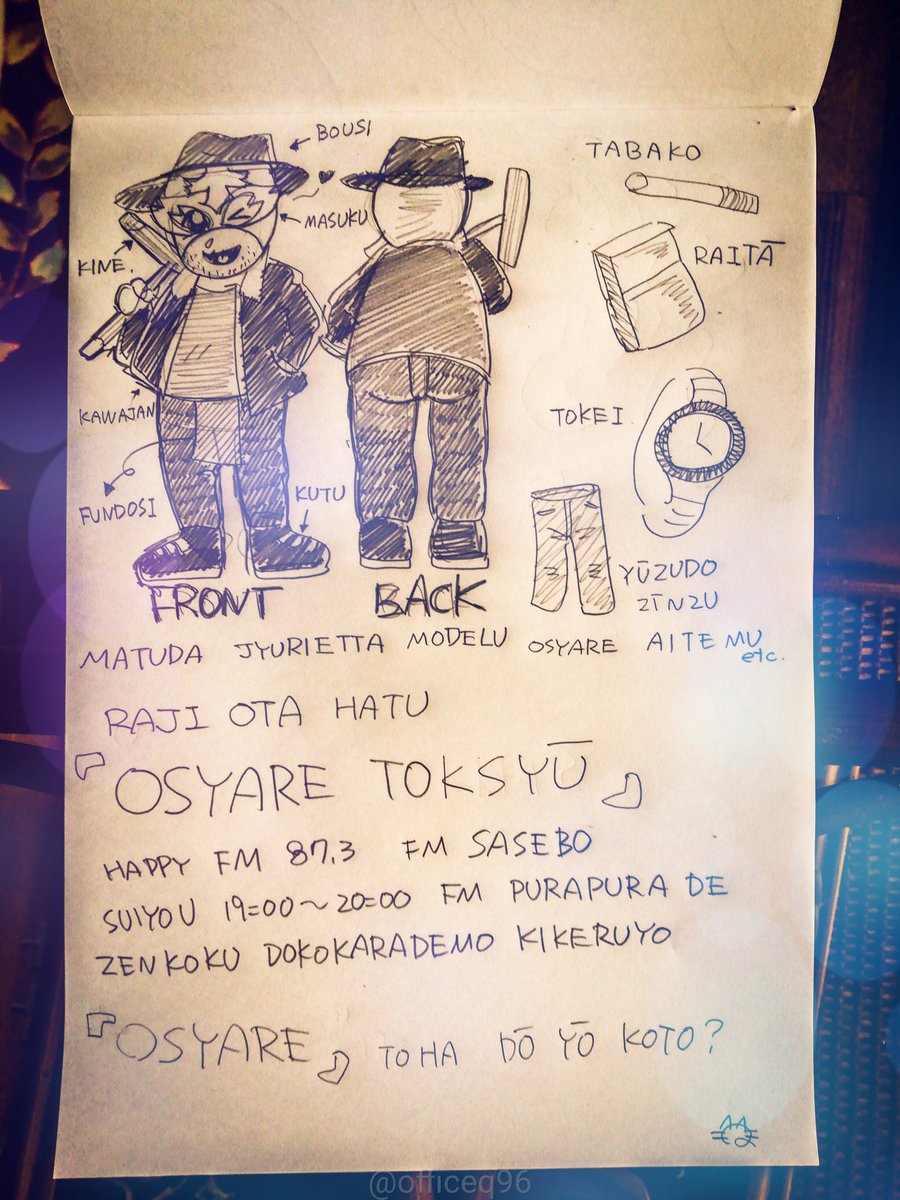 BOUSI
MASUKU
KINE.
KAWAJAN
FUNDOSI
KUTU
FRONT
BACK
TABAKO
RAITĀ
TOKEI
YŪZUDO
ZĪNZU
MATUDA JYURIETTA MODELU OSYARE AITEMU
etc.
RAJI OTA HATU
『OSYARE TOKSYŪ』
HAPPY FM 87.3 FM SASEBO
SUIYOU 19=00〜20=00 FM PURAPURA DE
ZENKOKU DOKOKARADEMO KIKERUYO
『OSYARE』 TOHA DŌ YŌ KOTO?
@officeq96